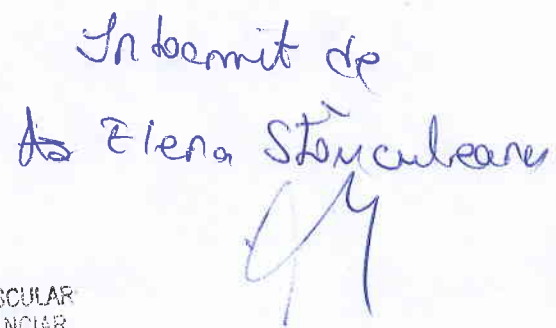 Întocmit de
As Elena Stănculeanu
SCULAR
NCIAR